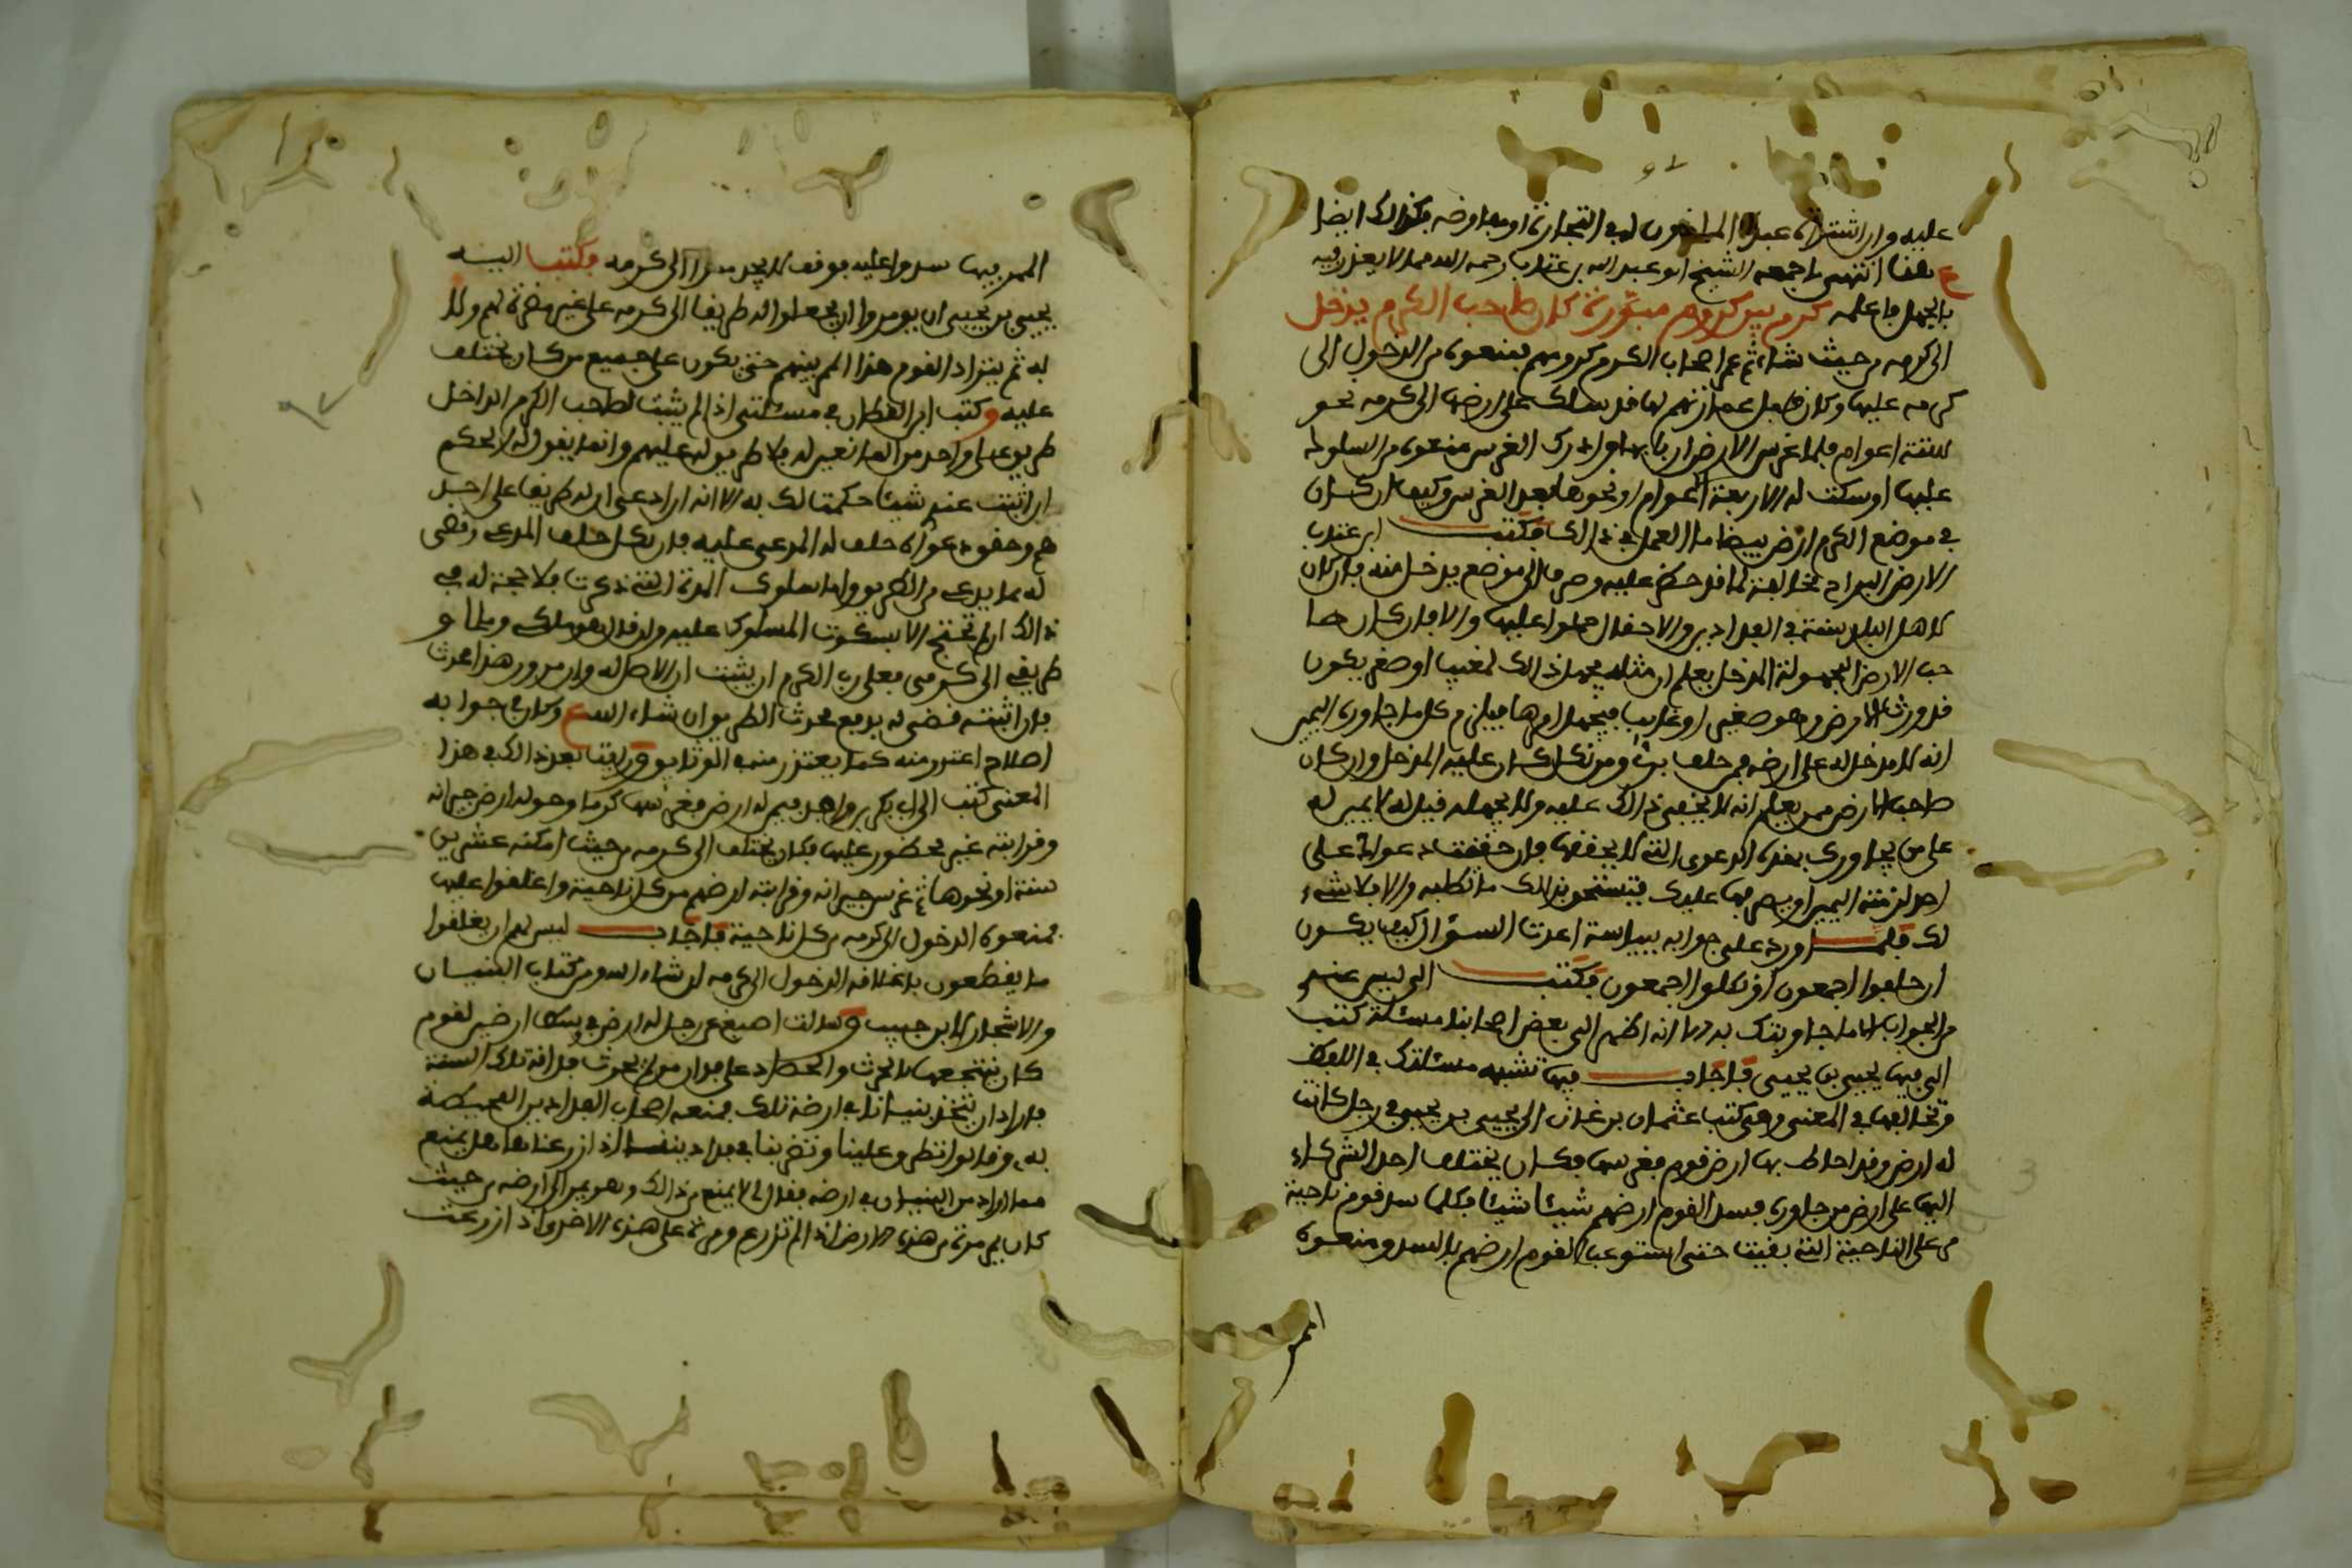 عليه وان اشتراه عبده الماذون له في التجارة او مفاوضه فكذلك ايضا
هنا انتهى ما جمعه الشيخ ابو عبد الله بن عتاب رحمه الله مما لا يعذر فيه
بالجهل فاعلمه كرم بين كروم مبورة كان صاحب الكرم يدخل
الى كرمه من حيث شاء ثم عمر اصحاب الكروم كرومهم فمنعوه من الدخول الى
كرمه عليها وكان قبل عمارتهم لها قد سلك على ارضها الى كرمه نحو
ستة اعوام فلما غرس الارض اربابها وادرك الغرس منعوه من السلوك
عليها او سكت له الاربعة اعوام او نحوها بعد الغرس وكيف ان كان
في موضع الكرم ارض بيضا ما العمل في ذالك فكتب ابن عتاب
الارض البراح مخالفة لما قد حظر عليه وصرف الى موضع يدخل منه فان كان
لاهل البلد سنة في الفدادين والاحقال حملوا عليها والا فان كان صا
حب الارض المجهولة المدخل يعلم ان مثله يجهل ذالك لمغيب او صغر يكون
قد ورث الارض وهو صغير او غايب فيجهل امرها فيلزم كل ما جاوره اليمين
انه لا مدخل له على ارضه فمن حلف برئ ومن نكل كان عليه المدخل وان كان
صاحب الارض ممن يعلم انه لا يخفى ذالك عليه ولا يجهله قيل له لا يمين له
على من يجاورك بهذه الدعوى التي لا تحققها فان حققت دعواك على
احد لزمته اليمين او يصرفها عليك فتستحق بذالك ما تطلبه والا فلا شيء
لك فلما ورد على جوابه بياسة اعدت السؤال كيف يكون
ان حلفوا اجمعون او نكلوا اجمعون فكتب الي ليس عندي
من الجواب الا ما جاوبتك به الا انه اظهر الي بعض اصحابنا مسئلة كتب
الى فيها يحيى بن يحيى فاجاب فيها تشبه مسئلتك في اللفظ
وتخالفها في المعنى وهي كتب عثمان بن غدان الى يحيى بن يحيى في رجل كانت
له ارض وقد احاط بها ارض قوم فغرسها فكان يختلف احد الشركاء
اليها على ارض من جاوره فسد القوم ارضهم شيئا شيئا فكلما سد قوم ناحية
مر على الناحية التي بقيت حتى استوعب القوم ارضهم بالسد ومنعوه
الممر
الممر فيها سدوا عليه فوقف لا يجد ممرا الى كرمه فكتب اليه
يحيى بن يحيى ان يومروا ان يجعلوا له طريقا الى كرمه على غير مضرة لهم ولا
له ثم يتراد القوم هذا الممر بينهم حتى يكون على جميع من كان يختلف
عليه وكتب ابن القطان في مسئلتي اذا لم يثبت لصاحب الكرم الداخل
طريق على واحد من المانعين له فلا طريق له عليهم وانما يقول له الحكم
ان اثبت عندي شيئا حكمت لك به الا انه ان ادعى ان له طريقا على احد
هم وحقق دعواه حلف له المدعى عليه فان نكل حلف المدعي وقضى
له بما يدعي من الطريق واما سلوك المدة التي ذكرت فلا حجة له في
ذالك ان لم تحتج الا بسكوت المسلوك عليه ولو قال هو ملكي ومالي و
طريقي الى كرمي فعلى رب الكرم ان يثبت ان الاصل له وان مرور هذا محدث
فان اثبته قضى له برفع محدث الطريق ان شاء الله وكان في جوابه
اصلاح اعتذر منه كما يعتذر منه في الوثايق ورايت بعد ذالك في هذا
المعنى كتب الى ابي بكر بن واهب فيمن له ارض فغرسها كرما وحوله ارض جيرانه
وقرابته غير محظور عليها فكان يختلف الى كرمه من حيث امكنه عشرين
سنة او نحوها ثم غرس جيرانه وقرابته ارضهم من كل ناحية واغلقوا عليها
فمنعوه الدخول الى كرمه من كل ناحية فاجاب ليس لهم ان يغلقوا
ما يقطعون باغلاقه الدخول الى كرمه ان شاء الله ومن كتاب البنيان
والاشجار لابن حبيب وسالت اصبغ عن رجل له ارض في وسط ارضين لقوم
كان ينتجعها للحرث والحصاد على فدان من لم يحرث فدانه تلك السنة
فاراد ان يتخذ بنيانا في ارضه تلك فمنعه اصحاب الفدادين المحيطة
به وقالوا تطرق علينا وتضر بنا في فدادينا اذا زرعناها هل يمنع
مما اراد من البنيان في ارضه فقال لي لا يمنع من ذالك وهو يمر الى ارضه من حيث
كان يمر مرة من هذه الارض اذا لم تزرع ومرة على هذه الاخرى اذا زرعت